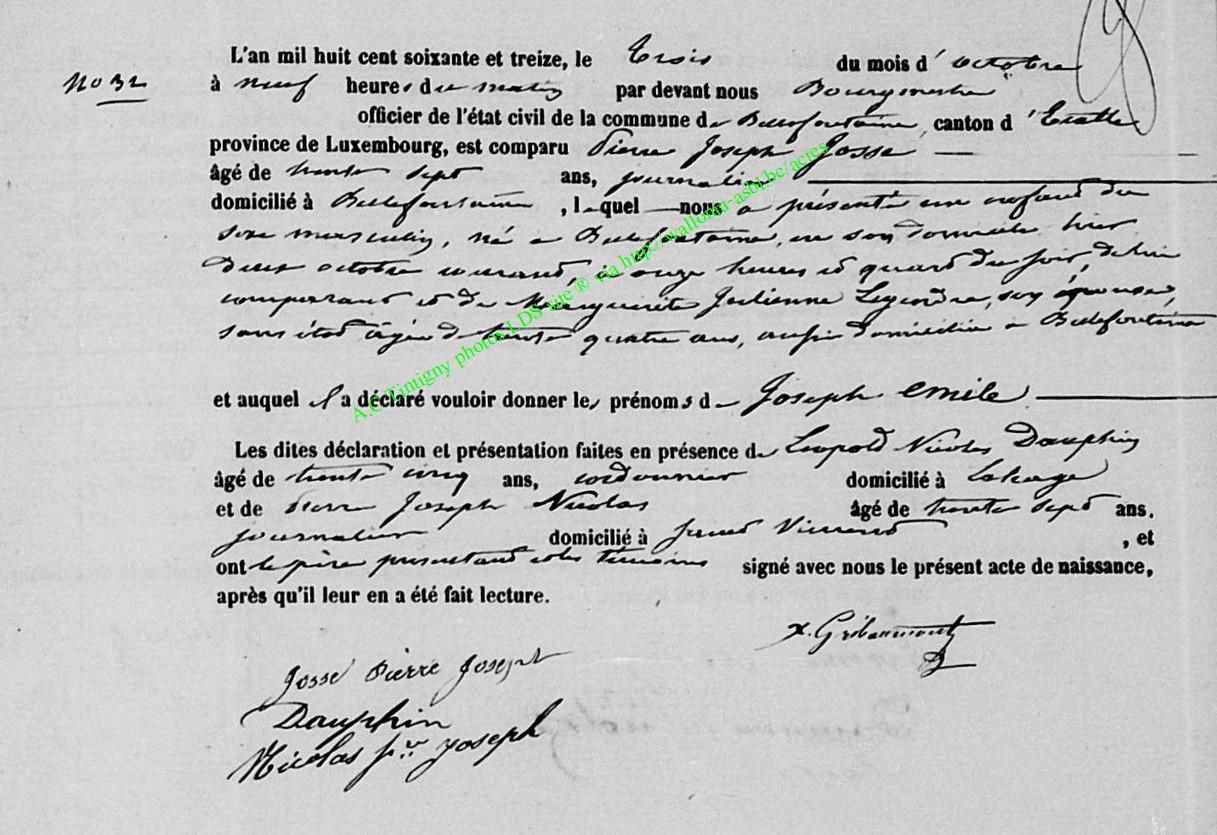 L'an mil huit cent soixante et treize, le trois du mois d'octobre
No 32 à neuf heures du matin par devant nous Bourgmestre
officier de l'état civil de la commune de Bellefontaine, canton d'Etalle
province de Luxembourg, est comparu Pierre Joseph Josse
âgé de trente sept ans, journalier
domicilié à Bellefontaine, lequel nous a présenté un enfant du
sexe masculin, né à Bellefontaine, en son domicile hier
deux octobre courant, à onze heures et quart du soir, de lui
comparant et de Marguerite Julienne Legendre, son épouse,
sans état âgée de trente quatre ans, aussi domiciliée à Bellefontaine
et auquel il a déclaré vouloir donner les prénoms de Joseph emile.
Les dites déclaration et présentation faites en présence de Leopold Nicolas Dauphin
âgé de trente cinq ans, cordonnier domicilié à Lahage
et de Pierre Joseph Nicolas âgé de trente sept ans.
journalier domicilié à , et
ont le père présentant et les témoins signé avec nous le présent acte de naissance,
après qu'il leur en a été fait lecture.
X. Gribaumont
Josse Pierre Joseph
Dauphin
Nicolas prre joseph
A.C Tintigny photos LDS site ® via http://wallonia-asbl.be/actes